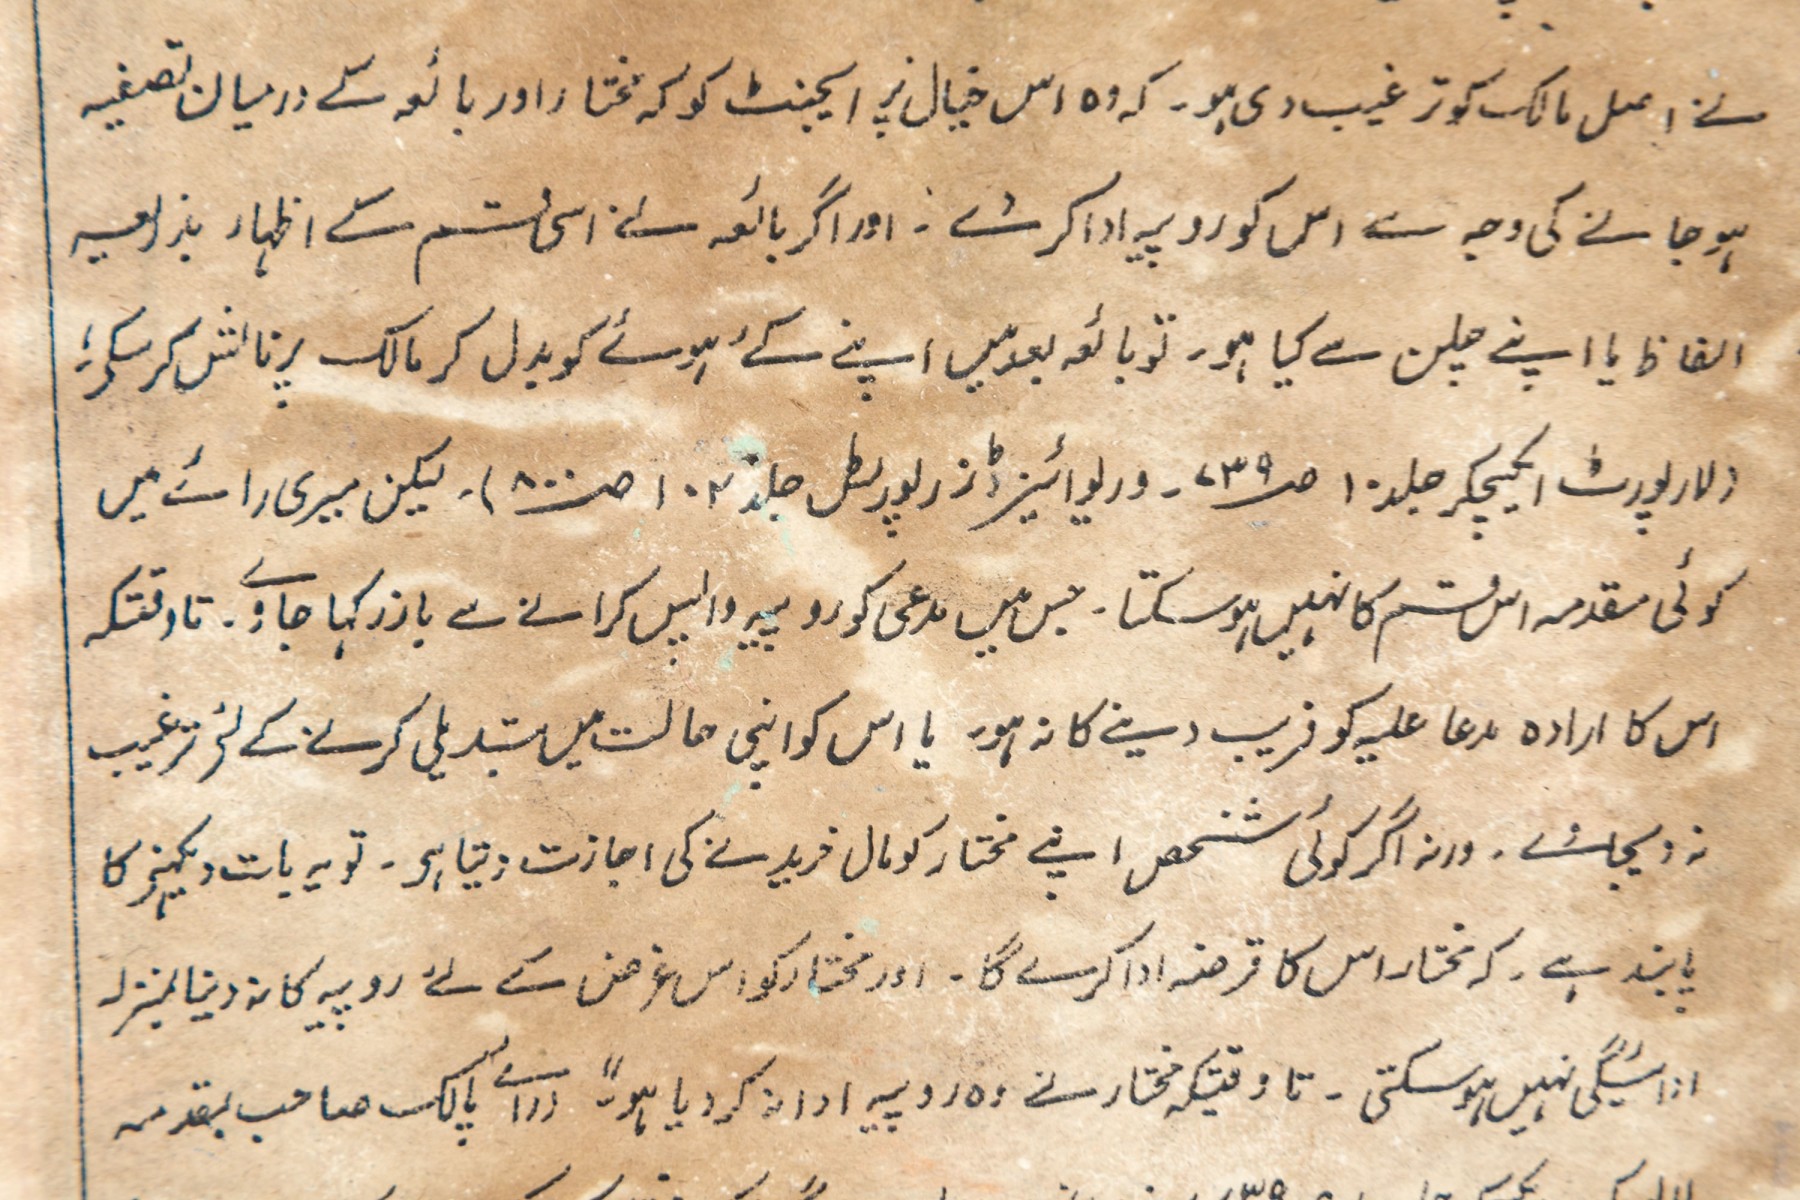 نے اصل مالک کو ترغیب دی ہو۔ کہ وہ اس خیال پر ایجنٹ کو کہ مختار اور بائعہ کے درمیان تصفیہ
ہو جانے کی وجہ سے اس کو روپیہ ادا کرے ۔ اور اگر بائعہ نے اسی قسم کے اظہار بذریعہ
الفاظ یا اپنے چلن سے کیا ہو۔ تو بائعہ بعد میں اپنے کئے ہوئے کو بدل کر مالک پر نالش کر سکے
(لارپورٹ ایکسچکر جلد ۱۰ صفحہ ۷۳۹۔ ورلوائینرڈز رپورٹس جلد ۱۰۲ صفحہ ۸۰۰)۔ لیکن میری رائے میں
کوئی مقدمہ اس قسم کا نہیں ہو سکتا۔ جس میں مدعی کو روپیہ واپس کرانے سے باز رکہا جاوے۔ تا وقتیکہ
اس کا ارادہ مدعا علیہ کو فریب دینے کا نہ ہو۔ یا اس کو اپنی حالت میں تبدیلی کرنے کے لئے ترغیب
نہ دیجائے۔ ورنہ اگر کوئی شخص اپنے مختار کو مال خریدنے کی اجازت دیتا ہو۔ تو یہ بات دیکہنے کا
پابند ہے۔ کہ مختار اس کا قرضہ ادا کرے گا۔ اور مختار کو اس غرض کے لئے روپیہ کا نہ دینا بمنزلہ
ادائیگی نہیں ہو سکتی۔ تا وقتیکہ مختار نے وہ روپیہ ادا نہ کر دیا ہو"۔ (رائے پالک صاحب بمقدمہ